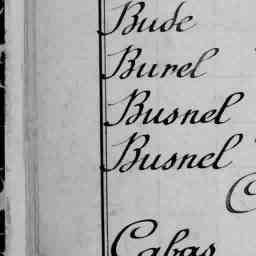 Bude
Burel
Busnel
Busnel
C
Cabas